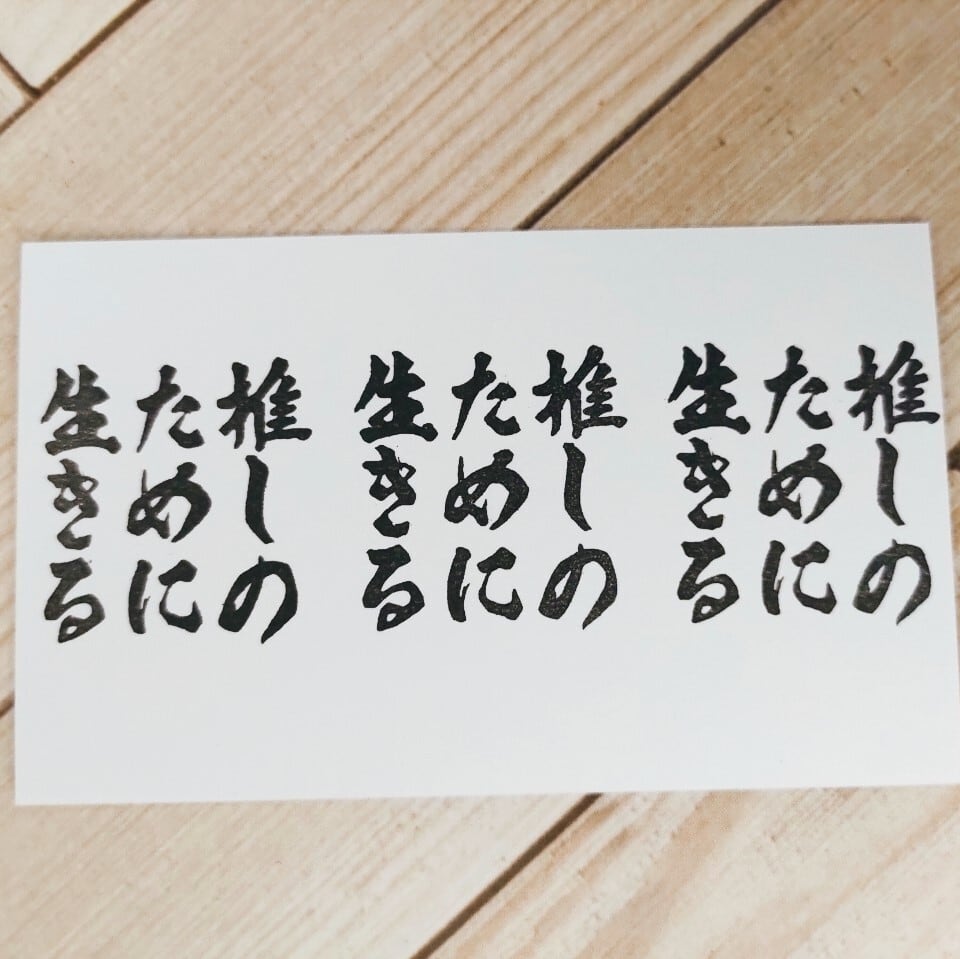 推しの
ために
生きる
推しの
ために
生きる
推しの
ために
生きる